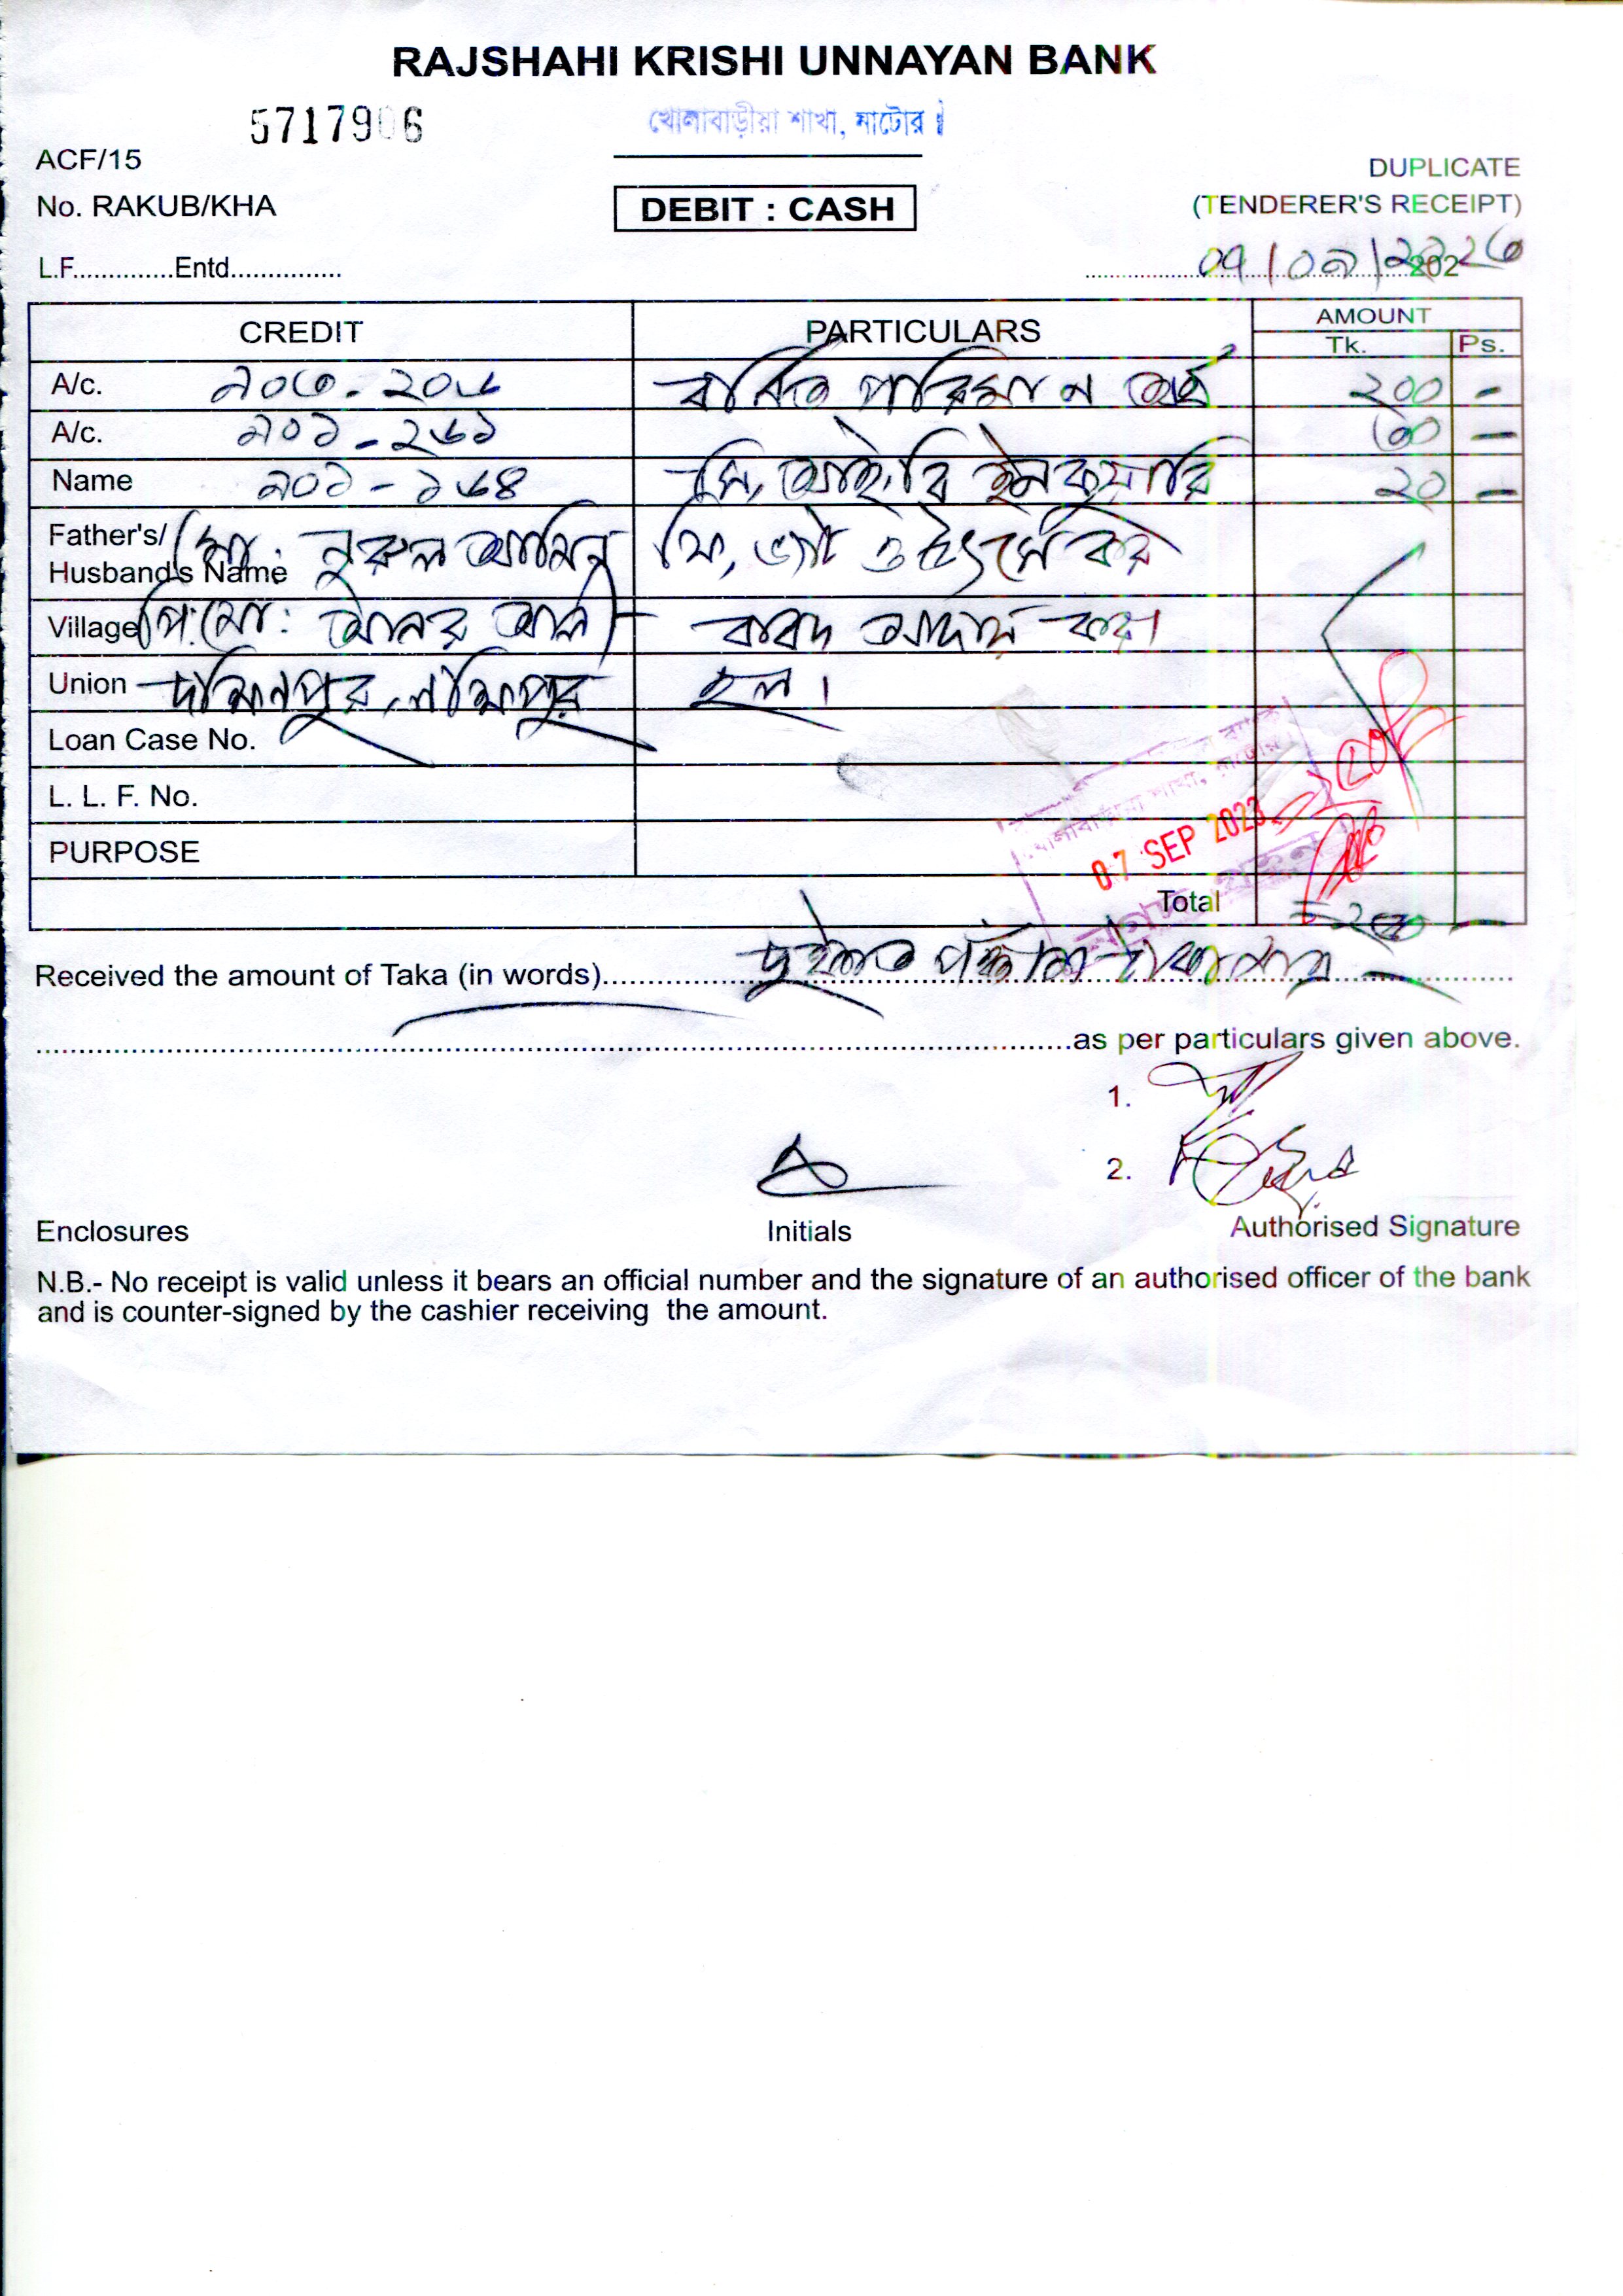 RAJSHAHI KRISHI UNNAYAN BANK
5717906
খোলাবাড়ীয়া শাখা, নাটোর।
ACF/15
DUPLICATE
No. RAKUB/KHA
DEBIT : CASH
(TENDERER'S RECEIPT)
L.F..............Entd...............
০৭/০৯/২০২৩ 202
CREDIT PARTICULARS AMOUNT
Tk. Ps.
A/c. ২০০ -
A/c. ৩০ -
Name ৯০১ - ১৬৪ সি, আই, বি ইনকুয়ারি ২০ -
Father's/
Husband's Name মো: নুরুল আমিন ফি, ভ্যাট ও উৎসে কর
Village পি: মো: আলী বাবদ আদায় করা
Union হল।
Loan Case No.
L. L. F. No.
PURPOSE
07 SEP 2023
Total = ২৫০
Received the amount of Taka (in words) দুইশত পঞ্চাশ টাকা মাত্র
as per particulars given above.
1.
2.
Enclosures Initials Authorised Signature
N.B.- No receipt is valid unless it bears an official number and the signature of an authorised officer of the bank
and is counter-signed by the cashier receiving the amount.